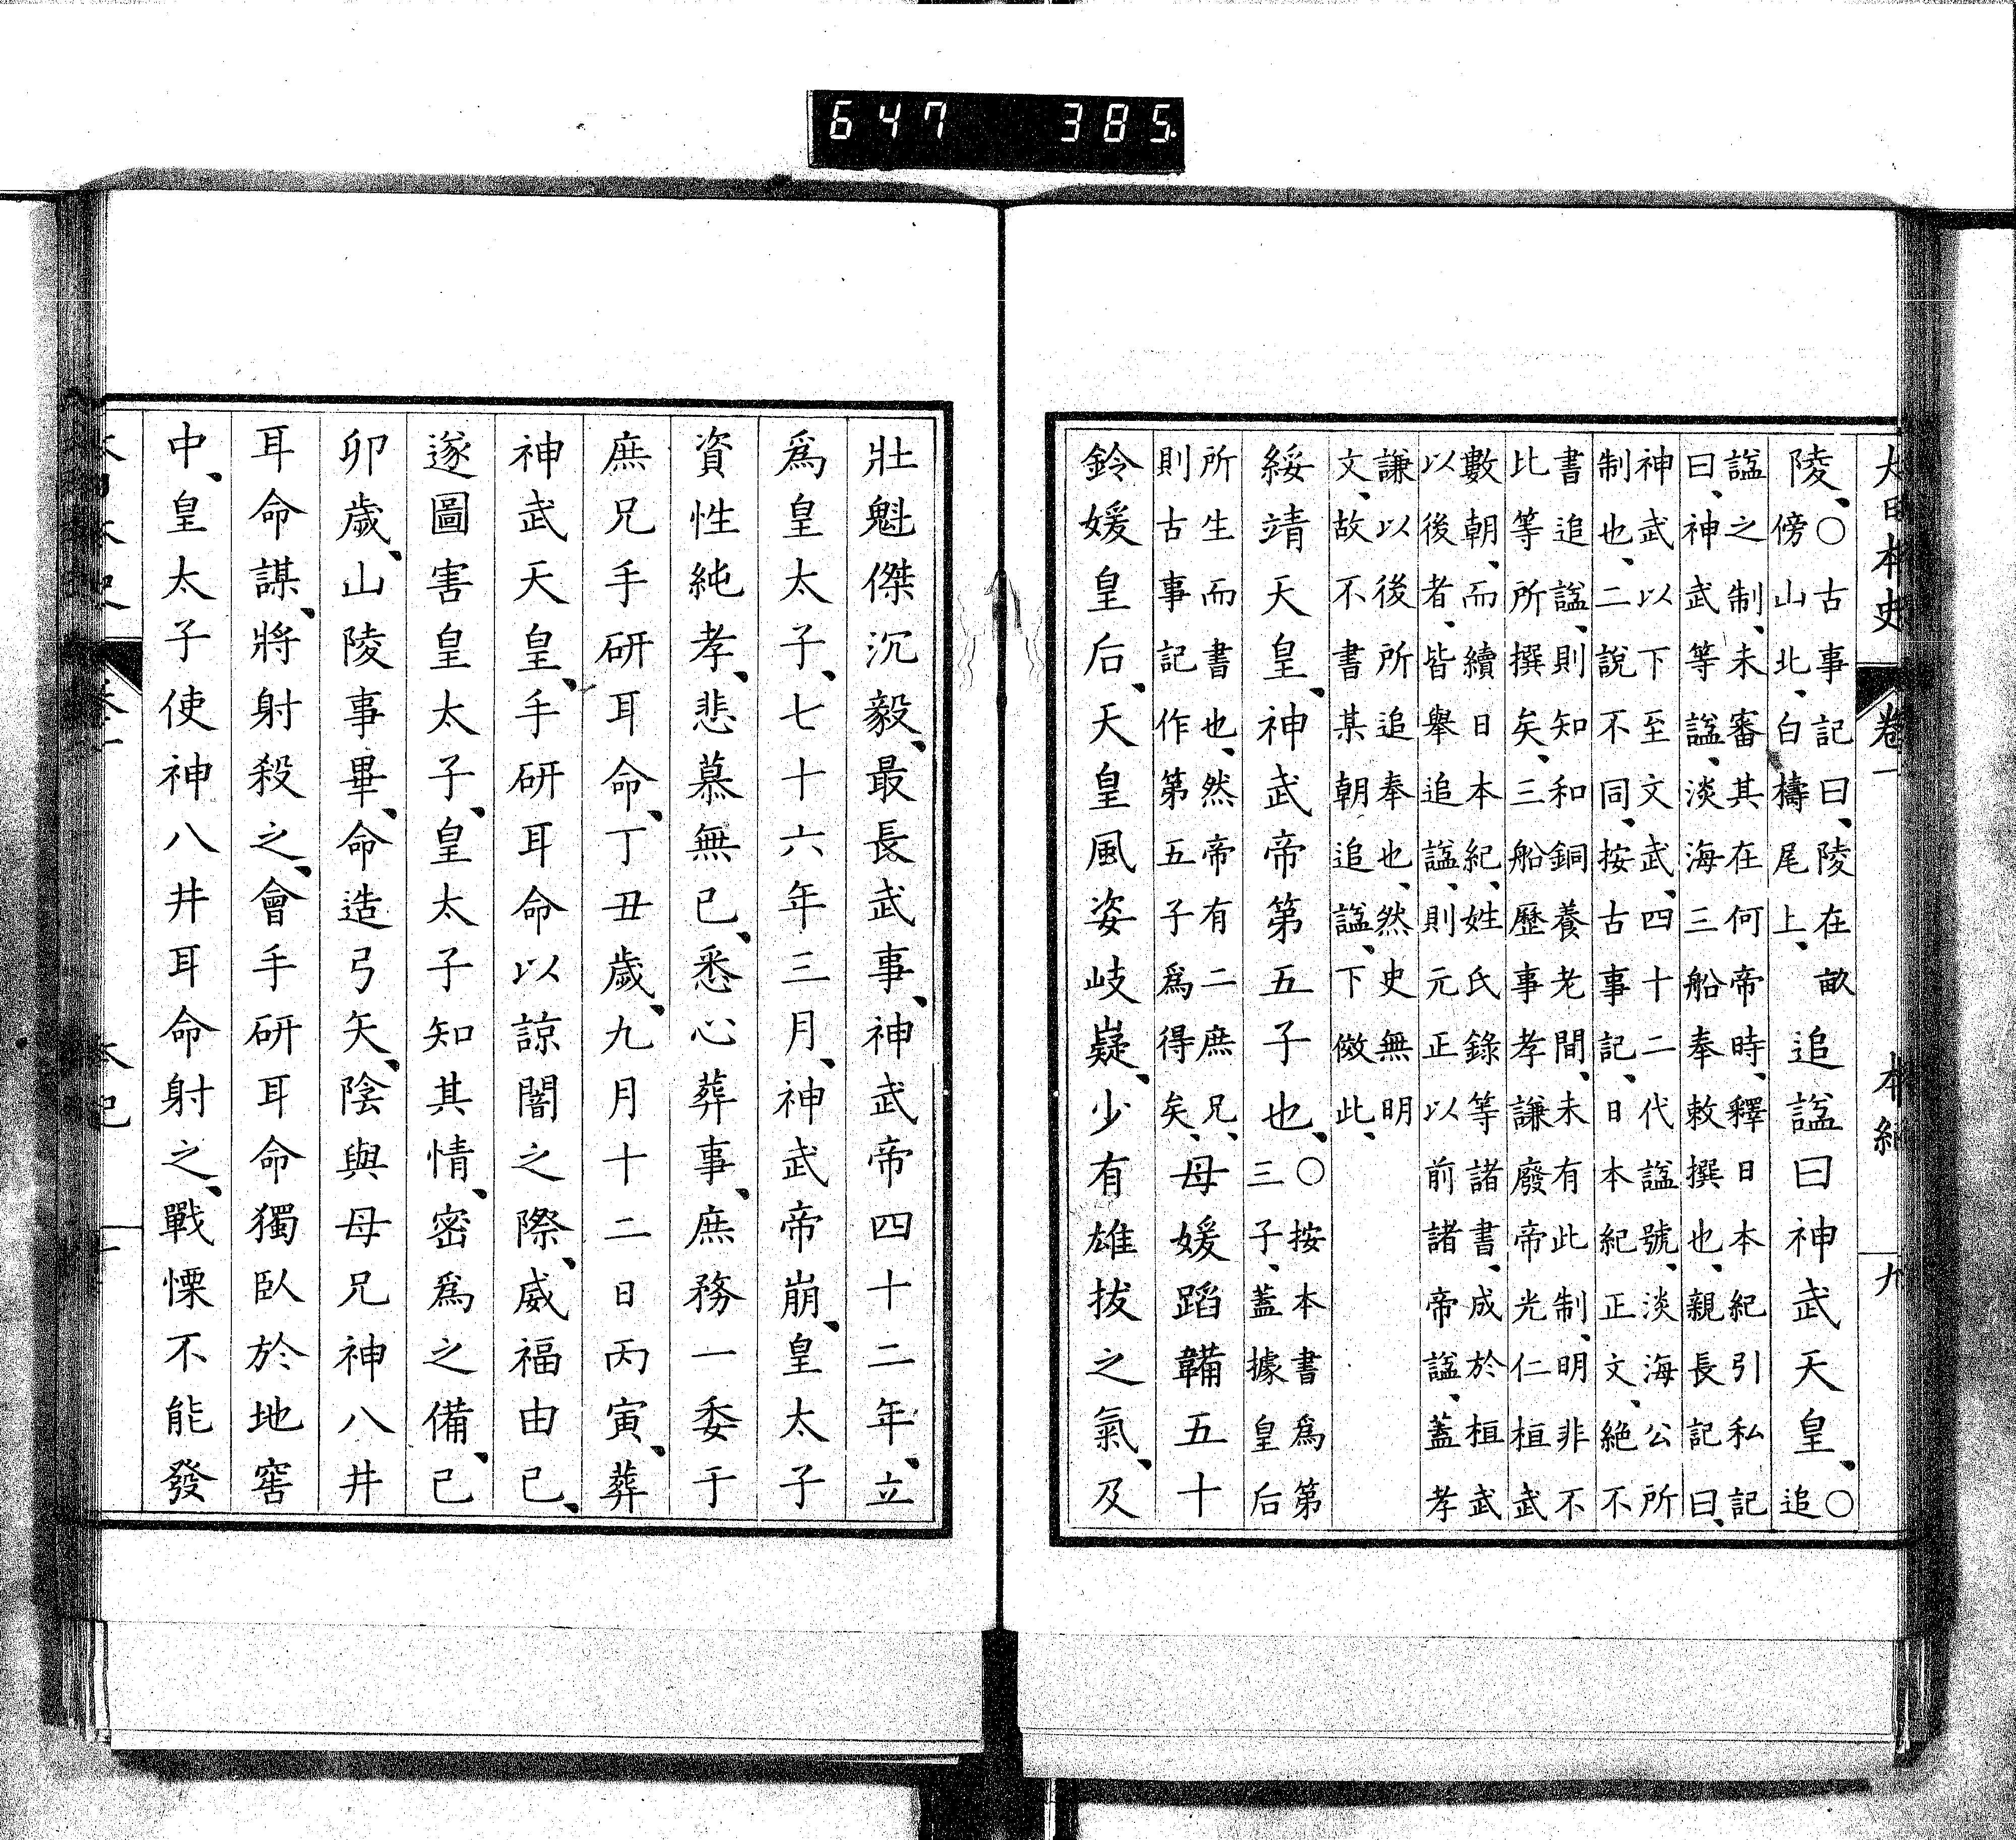 大日本史 卷一 本紀 九
陵、〇古事記曰、陵在畝傍山北、白檮尾上、追諡曰神武天皇、〇追
諡之制、未審其在何帝時、釋日本紀引私記
曰、神武等諡、淡海三船奉敕撰也、親長記曰、
神武以下至文武、四十二代諡號、淡海公所
制也、二說不同、按古事記、日本紀正文、絕不
書追諡、則知和銅養老間、未有此制、明非不
比等所撰矣、三船歷事孝謙廢帝光仁桓武
數朝、而續日本紀、姓氏錄等諸書、成於桓武
以後者、皆舉追諡、則元正以前諸帝諡、蓋孝
謙以後所追奉也、然史無明
文、故不書某朝追諡、下倣此、
綏靖天皇、神武帝第五子也、〇按本書爲第三子、蓋據皇后
所生而書也、然帝有二庶兄、則古事記作第五子爲得矣、母媛蹈鞴五十
鈴媛皇后、天皇風姿岐嶷、少有雄拔之氣、及
壯魁傑沉毅、最長武事、神武帝四十二年、立
爲皇太子、七十六年三月、神武帝崩、皇太子
資性純孝、悲慕無已、悉心葬事、庶務一委于
庶兄手研耳命、丁丑歲、九月十二日丙寅、葬
神武天皇、手研耳命以諒闇之際、威福由已、
遂圖害皇太子、皇太子知其情、密爲之備、已
卯歲、山陵事畢、命造弓矢、陰與母兄神八井
耳命謀、將射殺之、會手研耳命獨臥於地窖
中、皇太子使神八井耳命射之、戰慄不能發
647 385